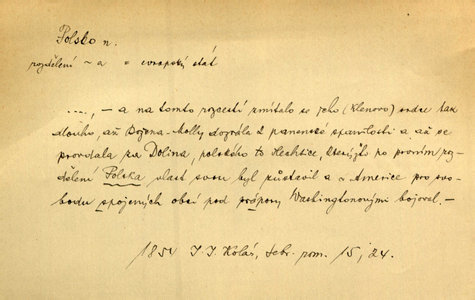 Polsko n.
rozdělení ~ a = evropský stát
...., – a na tomto rozcestí zmítalo se jeho (Klenovo) srdce tak
dlouho, až Božena-Molly dozrála k panenské spanilosti a až se
provdala za Dolina, polského to šlechtice, kterýžto po prvním roz-
dělení Polska vlast svou byl zůstavil a v Americe pro svo-
bodu spojených obcí pod prápory Washingtonovými bojoval. –
1854 J. J. Kolár, sebr. rom. 15, 24.